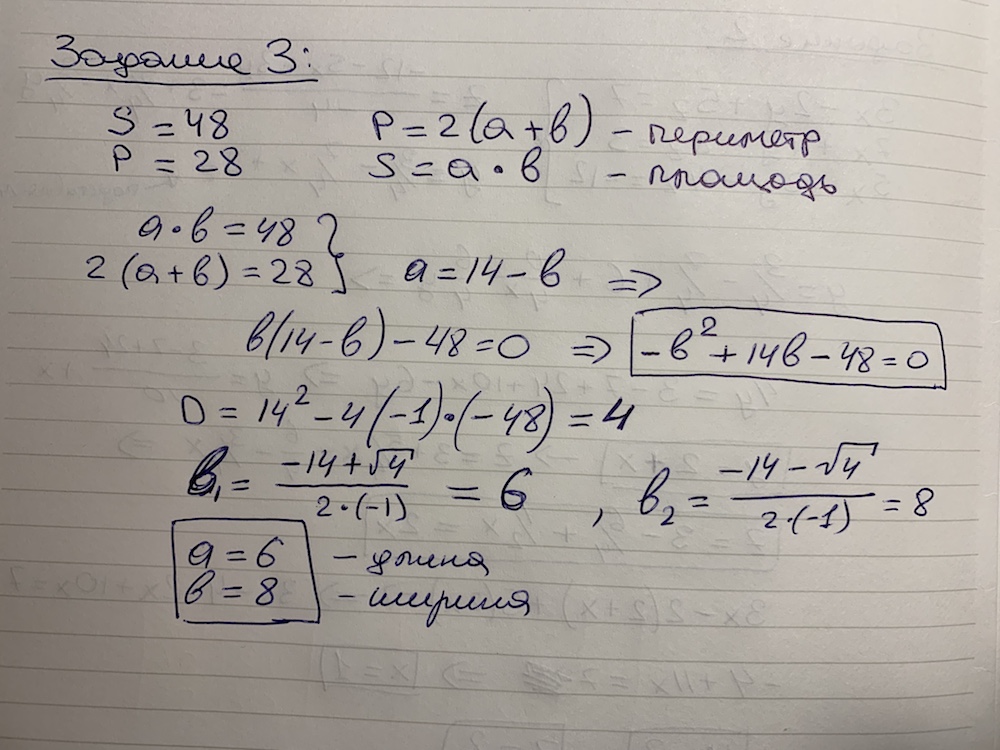 Задание 3:
S = 48 P = 2(a+в) – периметр
P = 28 S = a · в – площадь
a·в = 48 }
2(a+в) = 28 } a = 14 – в =>
в(14–в) – 48 = 0 => -в² + 14в – 48 = 0
D = 14² – 4(-1)·(-48) = 4
в₁ = (-14+√4)/(2·(-1)) = 6 , в₂ = (-14–√4)/(2·(-1)) = 8
a = 6 – длина
в = 8 – ширина